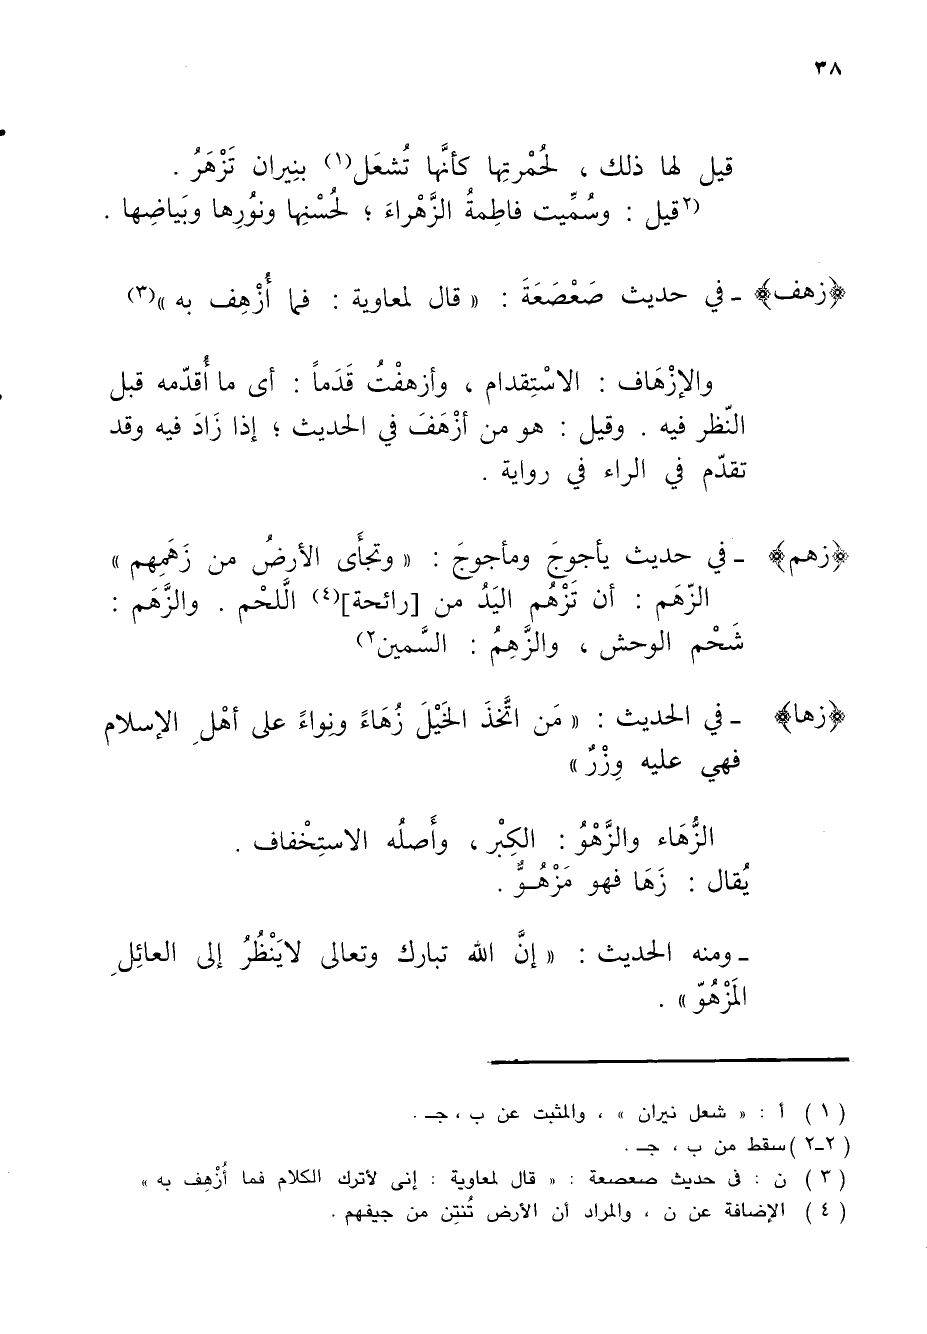 ٣٨
قيل لها ذلك ، لحُمْرتِها كأنَّها تُشعَل(١) بنِيران تَزْهَرُ .
(٢قيل : وسُمِّيت فاطِمةُ الزَّهْراءَ ؛ لحُسْنِها ونُورِها وبَياضِها .
﴿زهف﴾ ـ في حديث صَعْصَعَةَ : « قال لمعاوية : فما أُزْهِف به »(٣)
والإزْهَاف : الاسْتِقدام ، وأزهفْتُ قَدَماً : أى ما أُقدّمه قبل
النّظر فيه . وقيل : هو من أزْهَفَ في الحديث ؛ إذا زَادَ فيه وقد
تقدّم في الراء في رواية .
﴿زهم﴾ ـ في حديث يأجوجَ ومأجوجَ : « وتجأَى الأرضُ من زَهَمِهم »
الزّهَم : أن تَزْهُم اليَدُ من [رائحة](٤) الَّلحْم . والزَّهَم :
شَحْم الوحش ، والزَّهِمُ : السَّمين٢)
﴿زها﴾ ـ في الحديث : « مَن اتَّخذَ الخَيْلَ زُهَاءً ونِواءً على أهْلِ الإسلام
فهي عليه وِزْرٌ »
الزُّهَاء والزَّهْوُ : الكِبْر ، وأَصلُه الاستِخْفاف .
يُقال : زَهَا فهو مَزْهُوٌّ .
ـ ومنه الحديث : « إنَّ الله تبارك وتعالى لايَنْظُرُ إلى العائِلِ
المَزْهُوّ » .
(١) أ : « شعل نيران » ، والمثبت عن ب ، جـ .
(٢ـ٢) سقط من ب ، جـ .
(٣) ن : فى حديث صعصعة : « قال لمعاوية : إنى لأترك الكلام فما أُزْهِف به »
(٤) الإضافة عن ن ، والمراد أن الأرض تُنتِن من جيفهم .